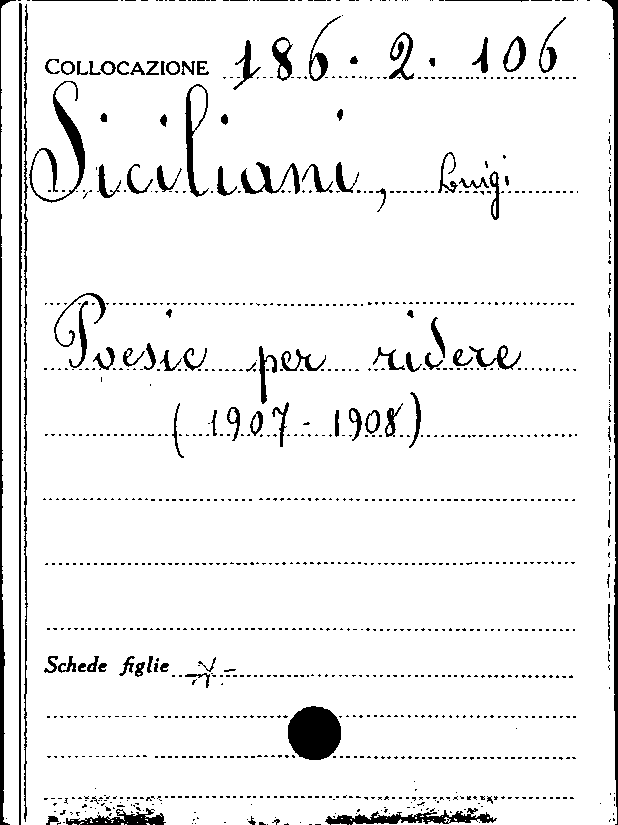 COLLOCAZIONE 186.2.106
Siciliani, Luigi
Poesie per ridere
(1907-1908)
Schede figlie